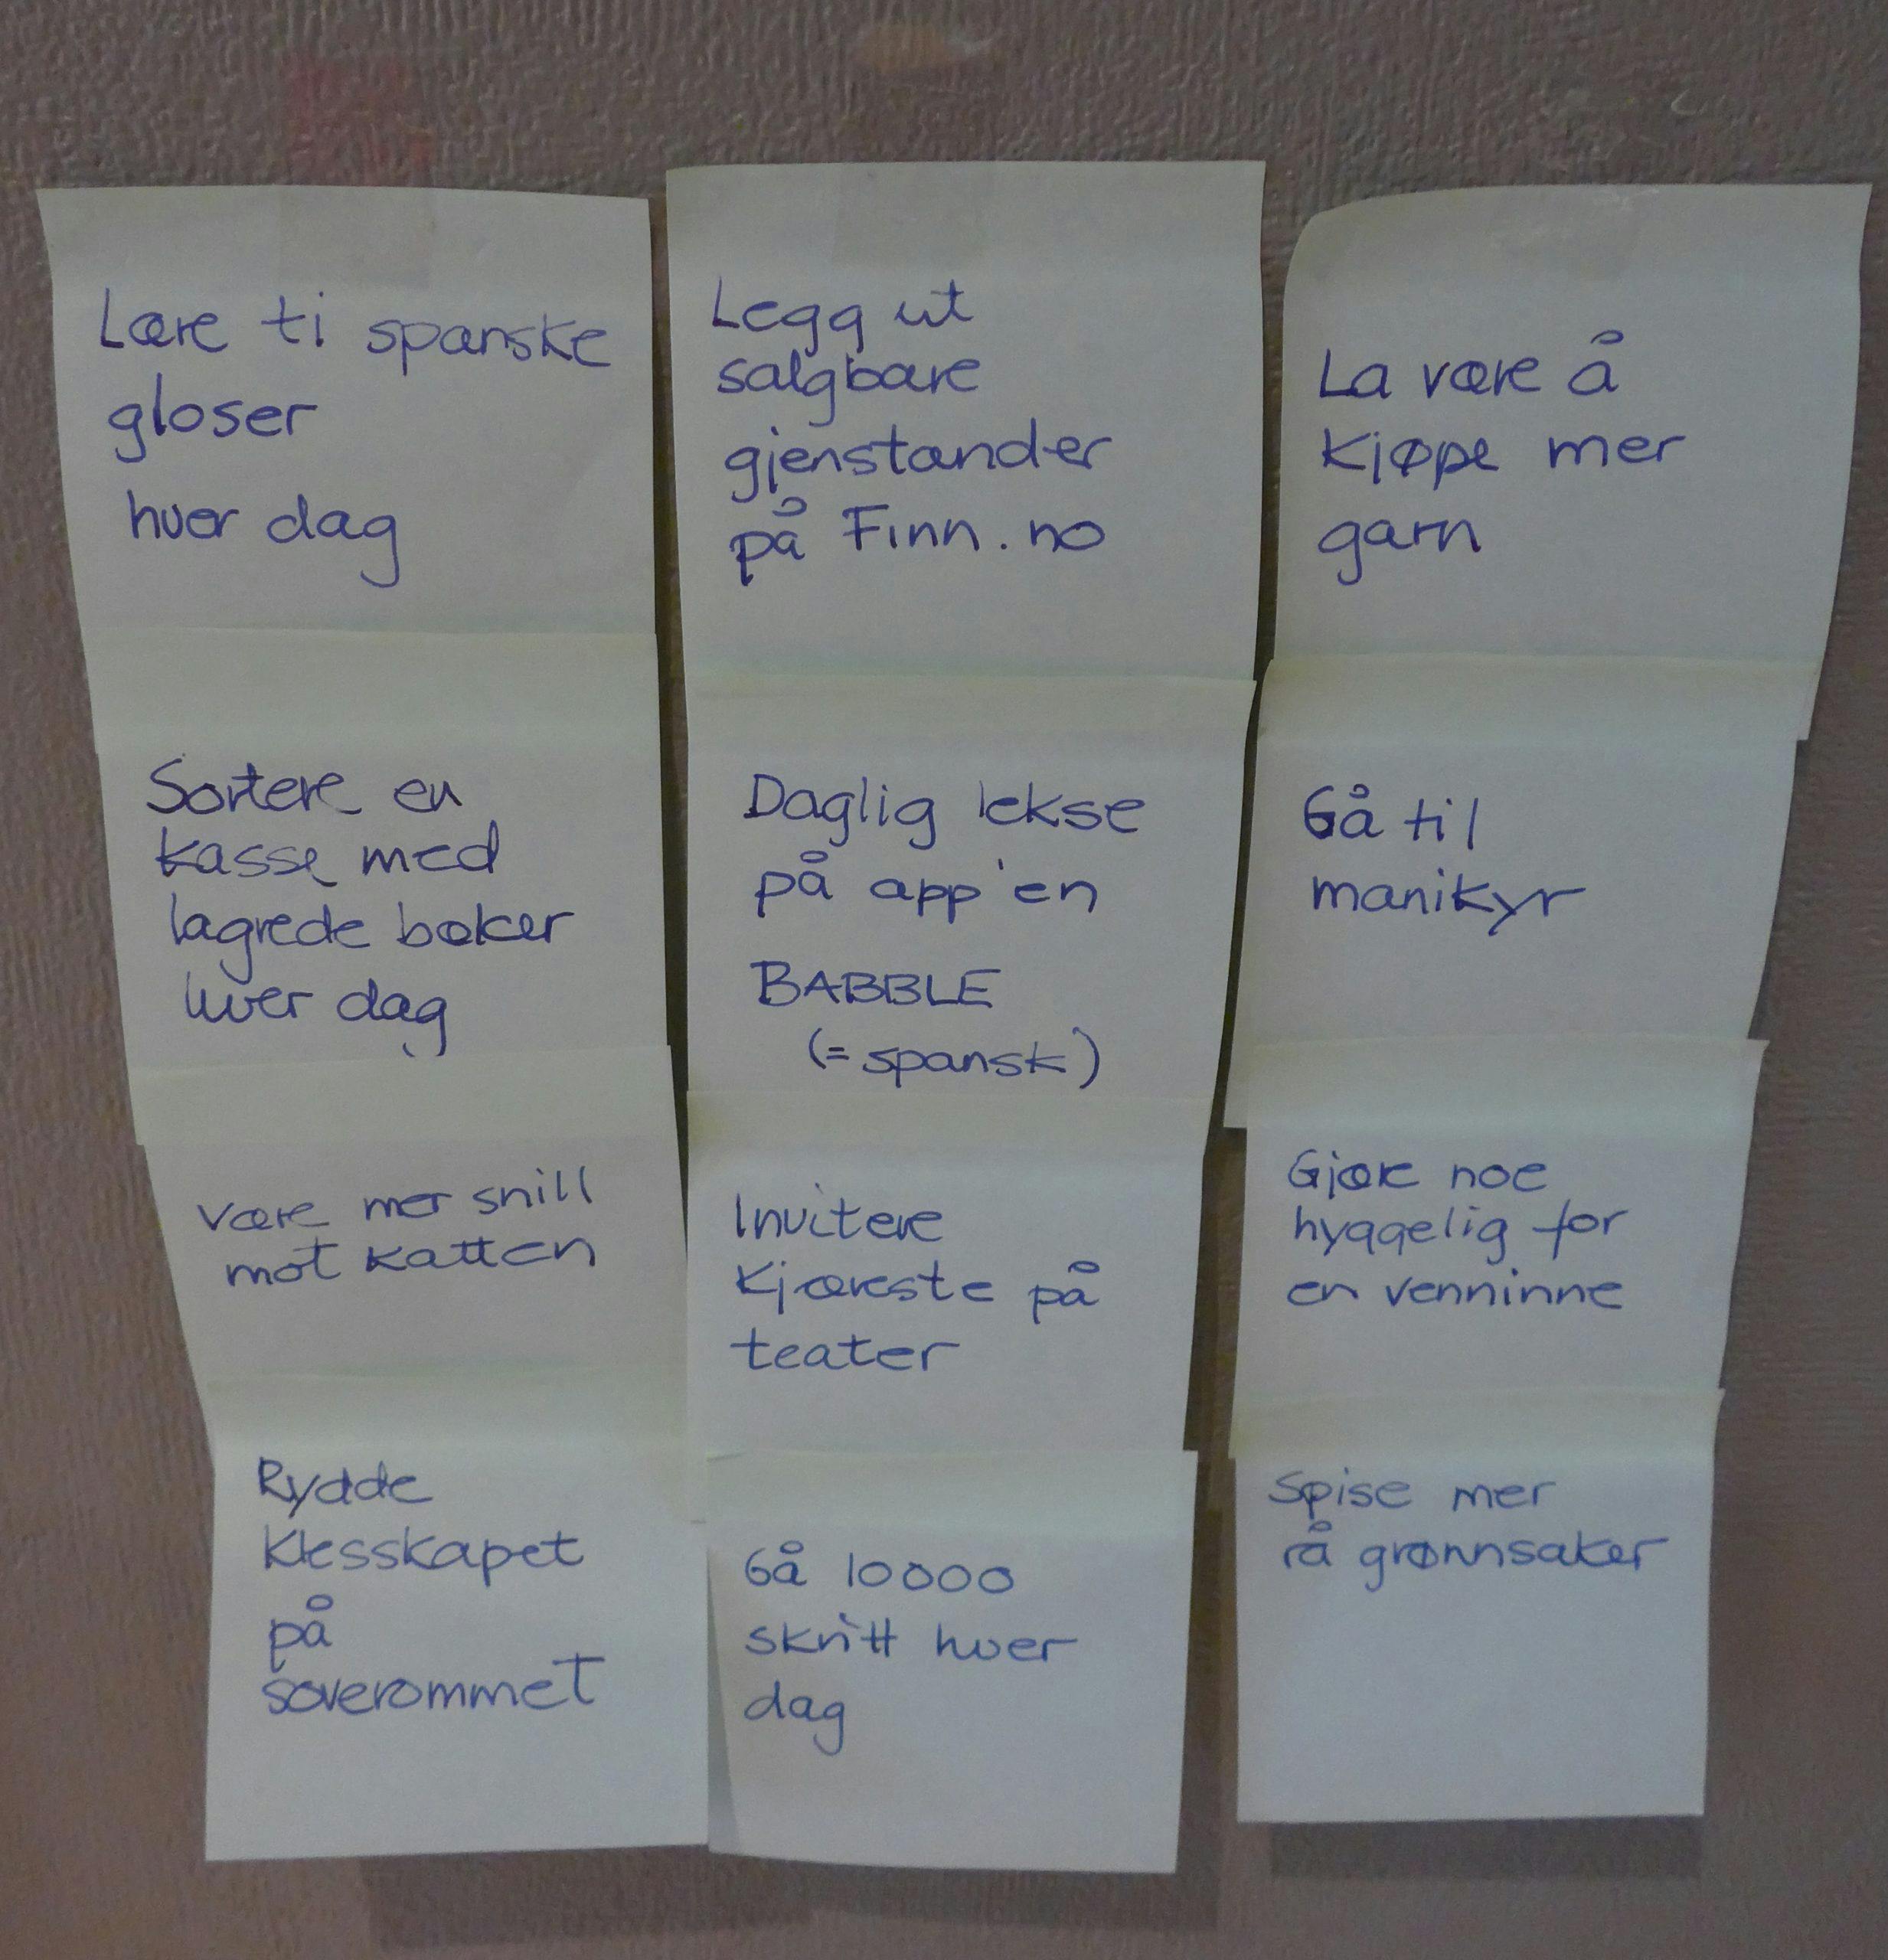 Lære ti spanske
gloser
hver dag
Sortere en
kasse med
lagrede bøker
hver dag
Være mer snill
mot katten
Rydde
Klesskapet
på
soverommet
Legg ut
salgbare
gjenstander
på Finn.no
Daglig lekse
på app'en
BABBLE
(= spansk)
Invitere
Kjæreste på
teater
Gå 10000
skritt hver
dag
La være å
kjøpe mer
garn
Gå til
manikyr
Gjøre noe
hyggelig for
en venninne
Spise mer
rå grønnsaker